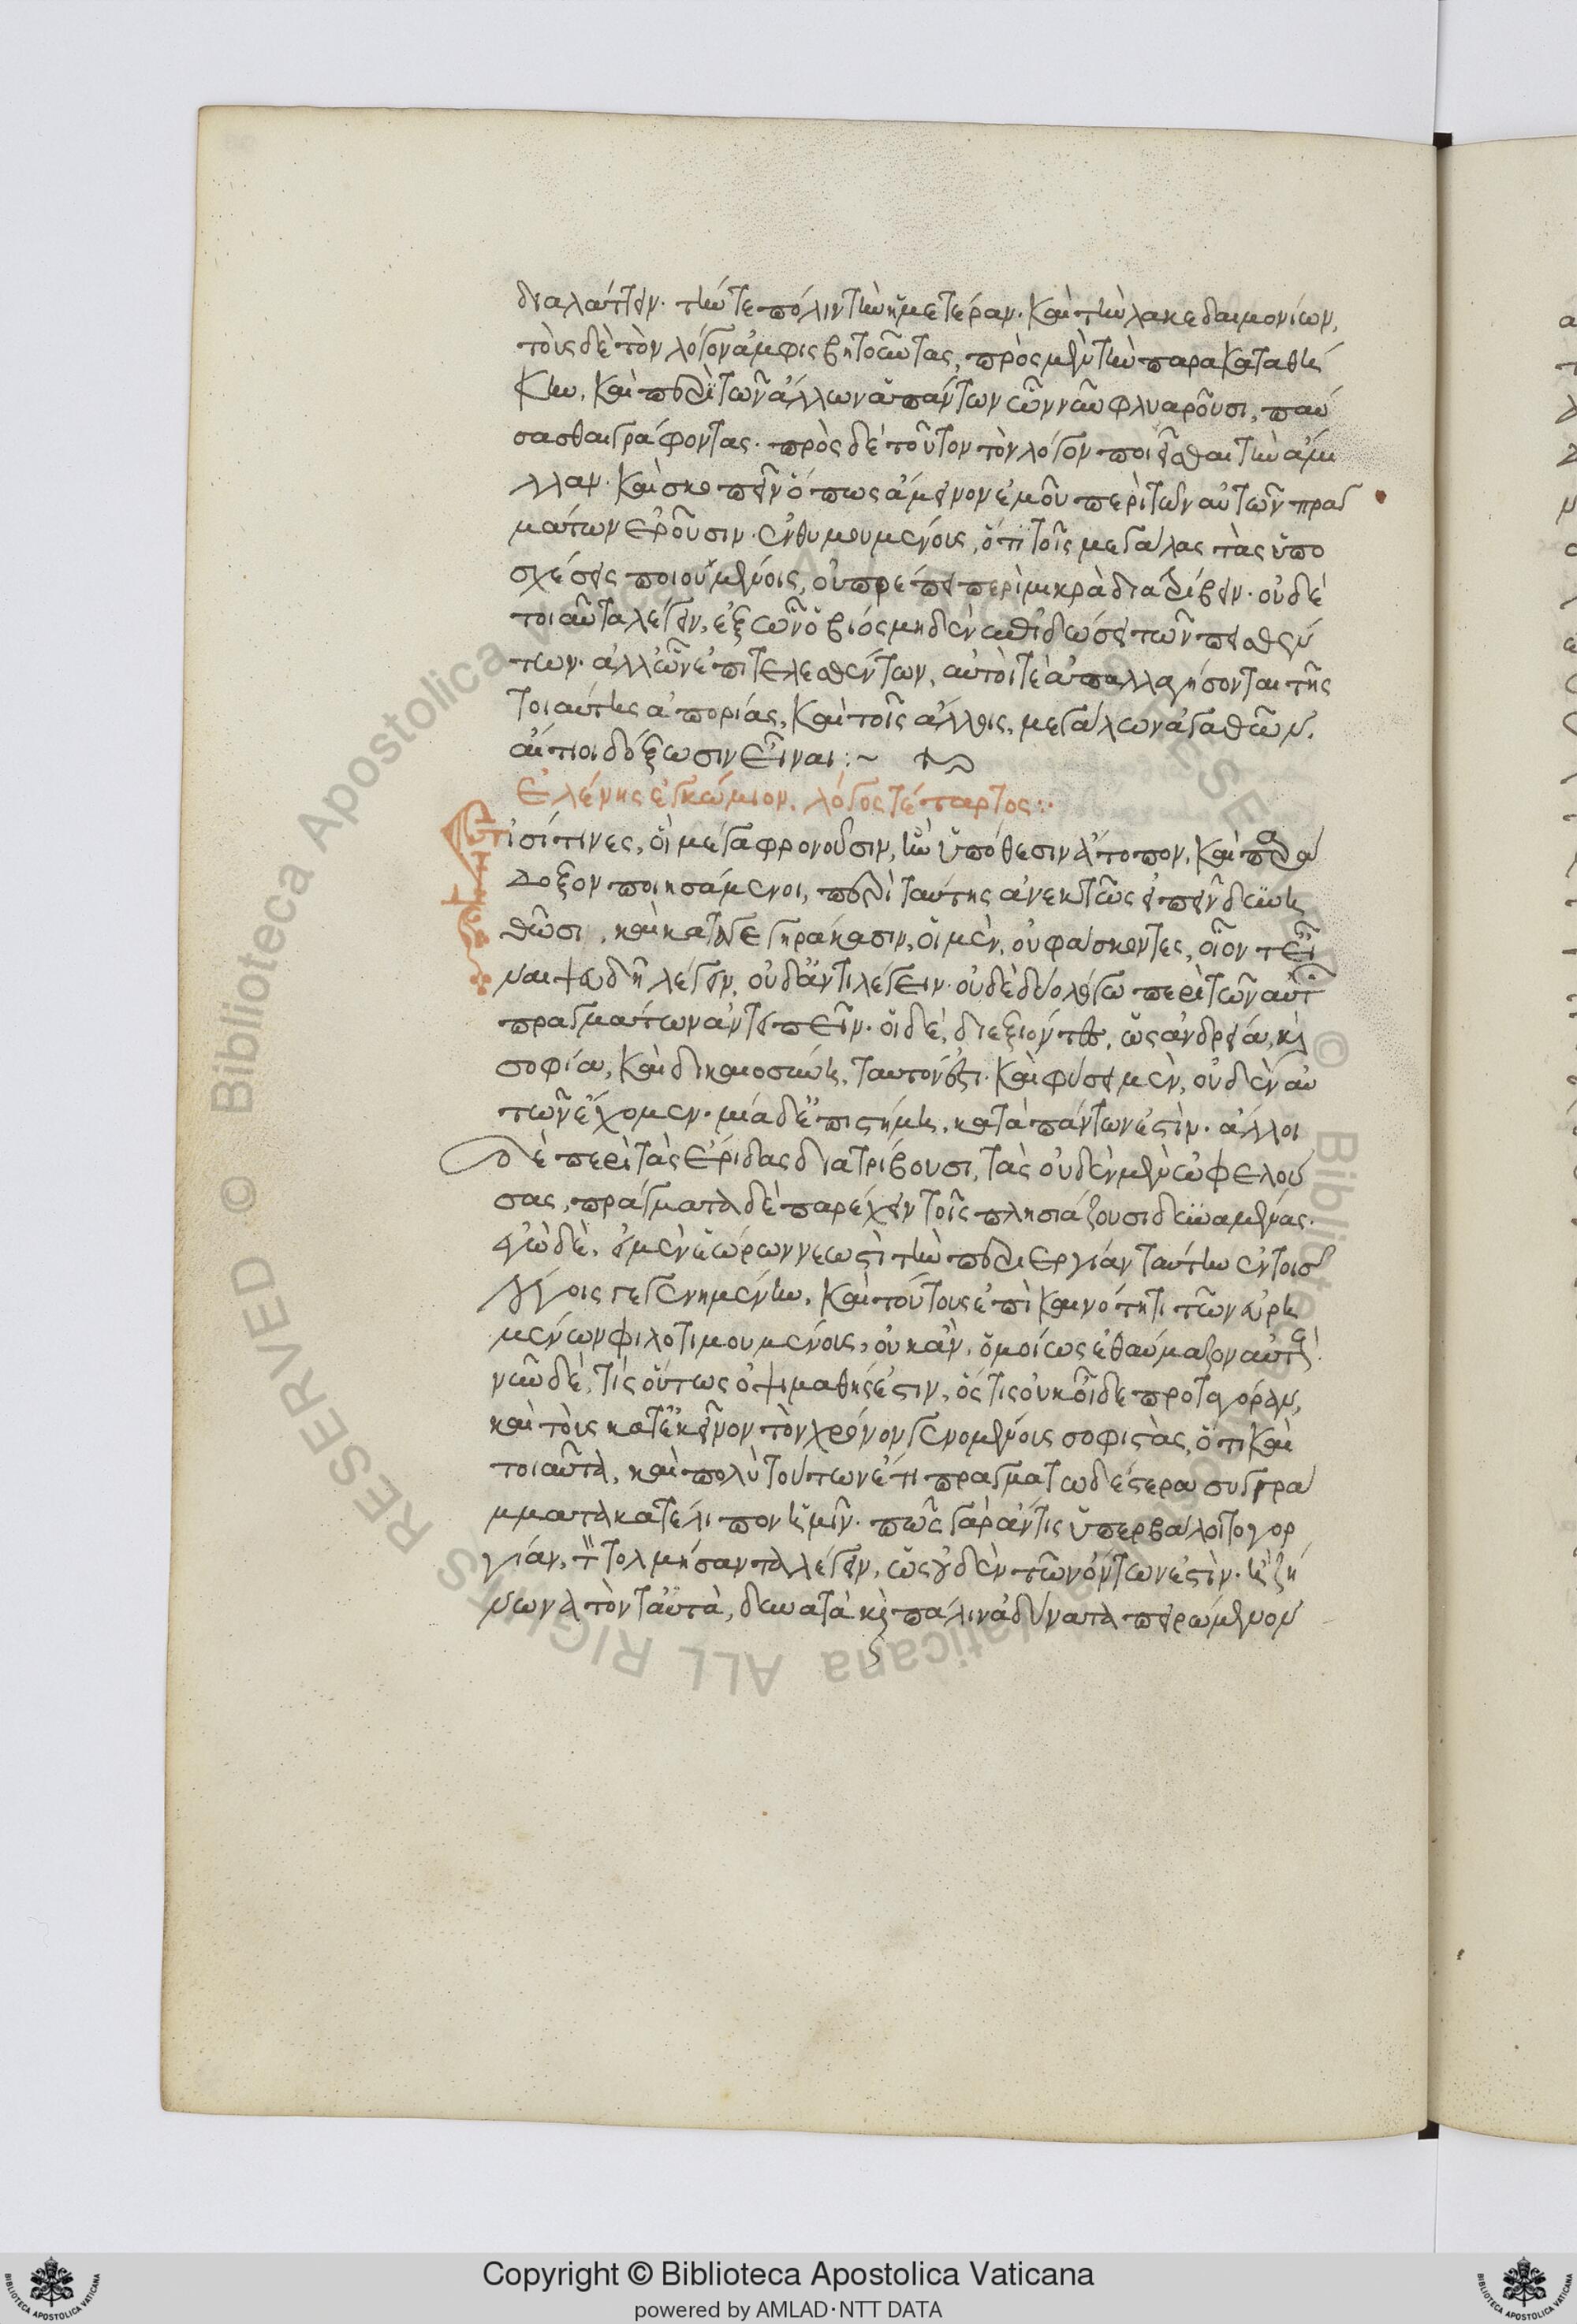 διαλάττειν· τήν τε πόλιν τὴν ἡμετέραν· καὶ τὴν λακεδαιμονίων,
τοὺς δὲ τὸν λόγον ἀμφισβητοῦντας, πρὸς μὲν τὴν παρακαταθή
κην, καὶ περὶ τῶν ἄλλων ἁπάντων ὧν νῦν φλυαροῦσι, παύ
σασθαι γράφοντας· πρὸς δὲ τοῦτον τὸν λόγον ποιεῖσθαι τὴν ἅμι
λλαν· καὶ σκοπεῖν ὅπως ἄμεινον ἐμοῦ περὶ τῶν αὐτῶν πραγ
μάτων ἐροῦσιν· ἐνθυμουμένους, ὅτι τοῖς μεγάλας τὰς ὑπο
σχέσεις ποιουμένοις, οὐ πρέπει περὶ μικρὰ διατρίβειν· οὐδὲ
τοιαῦτα λέγειν, ἐξ ὧν ὁ βίος μηδὲν ἐπιδώσει τῶν πεισθέν
των· ἀλλ' ὧν ἐπιτελεσθέντων, αὐτοί τε ἀπαλλαγήσονται τῆς
τοιαύτης ἀπορίας, καὶ τοῖς ἄλλοις, μεγάλων ἀγαθῶν,
αἴτιοι δόξωσιν εἶναι :~
Ἑλένης ἐγκώμιον. λόγος τέταρτος :·
Εἰσί τινες, οἳ μέγα φρονοῦσιν, ἢν ὑπόθεσιν ἄτοπον, καὶ παρά
δοξον ποιησάμενοι, περὶ ταύτης ἀνεκτῶς εἰπεῖν δυνη
θῶσι, καὶ καταγεγηράκασιν, οἱ μὲν, οὐ φάσκοντες, οἷόν τ' εἶ
ναι ψευδῆ λέγειν, οὐδ' ἀντιλέγειν· οὐδὲ δύο λόγω περὶ τῶν αὐτῶν
πραγμάτων ἀντειπεῖν· οἱ δὲ, διεξιόντες, ὡς ἀνδρεία, καὶ
σοφία, καὶ δικαιοσύνη, ταυτόν ἐστι· καὶ φύσει μὲν, οὐδὲν αὐ
τῶν ἔχομεν· μία δ' ἐπιστήμη, κατὰ πάντων ἐστὶν· ἄλλοι
δὲ περὶ τὰς ἔριδας διατρίβουσι, τὰς οὐδὲν μὲν ὠφελού
σας, πράγματα δὲ παρέχειν τοῖς πλησιάζουσι δυναμένας.
ἐγὼ δὲ, εἰ μὲν ἑώρων νεωστὶ τὴν περιεργίαν ταύτην ἐν τοῖς
λόγοις γεγενημένην, καὶ τούτους ἐπὶ καινότητι τῶν εὑρη
μένων φιλοτιμουμένους, οὐκ ἂν, ὁμοίως ἐθαύμαζον αὐτούς.
νῦν δὲ, τίς οὕτως ὀψιμαθής ἐστιν, ὅς τις οὐκ οἶδε πρωταγόραν,
καὶ τοὺς κατ' ἐκεῖνον τὸν χρόνον γενομένους σοφιστὰς, ὅτι καὶ
τοιαῦτα, καὶ πολὺ τούτων ἔτι πραγματωδέστερα συγγρά
μματα κατέλιπον ἡμῖν· πῶς γὰρ ἄν τις ὑπερβάλοιτο γορ
γίαν, τὸν τολμήσαντα λέγειν, ὡς οὐδὲν τῶν ὄντων ἐστὶν· ἢ ζή
νωνα τὸν ταὐτὰ, δυνατὰ καὶ πάλιν ἀδύνατα πειρώμενον